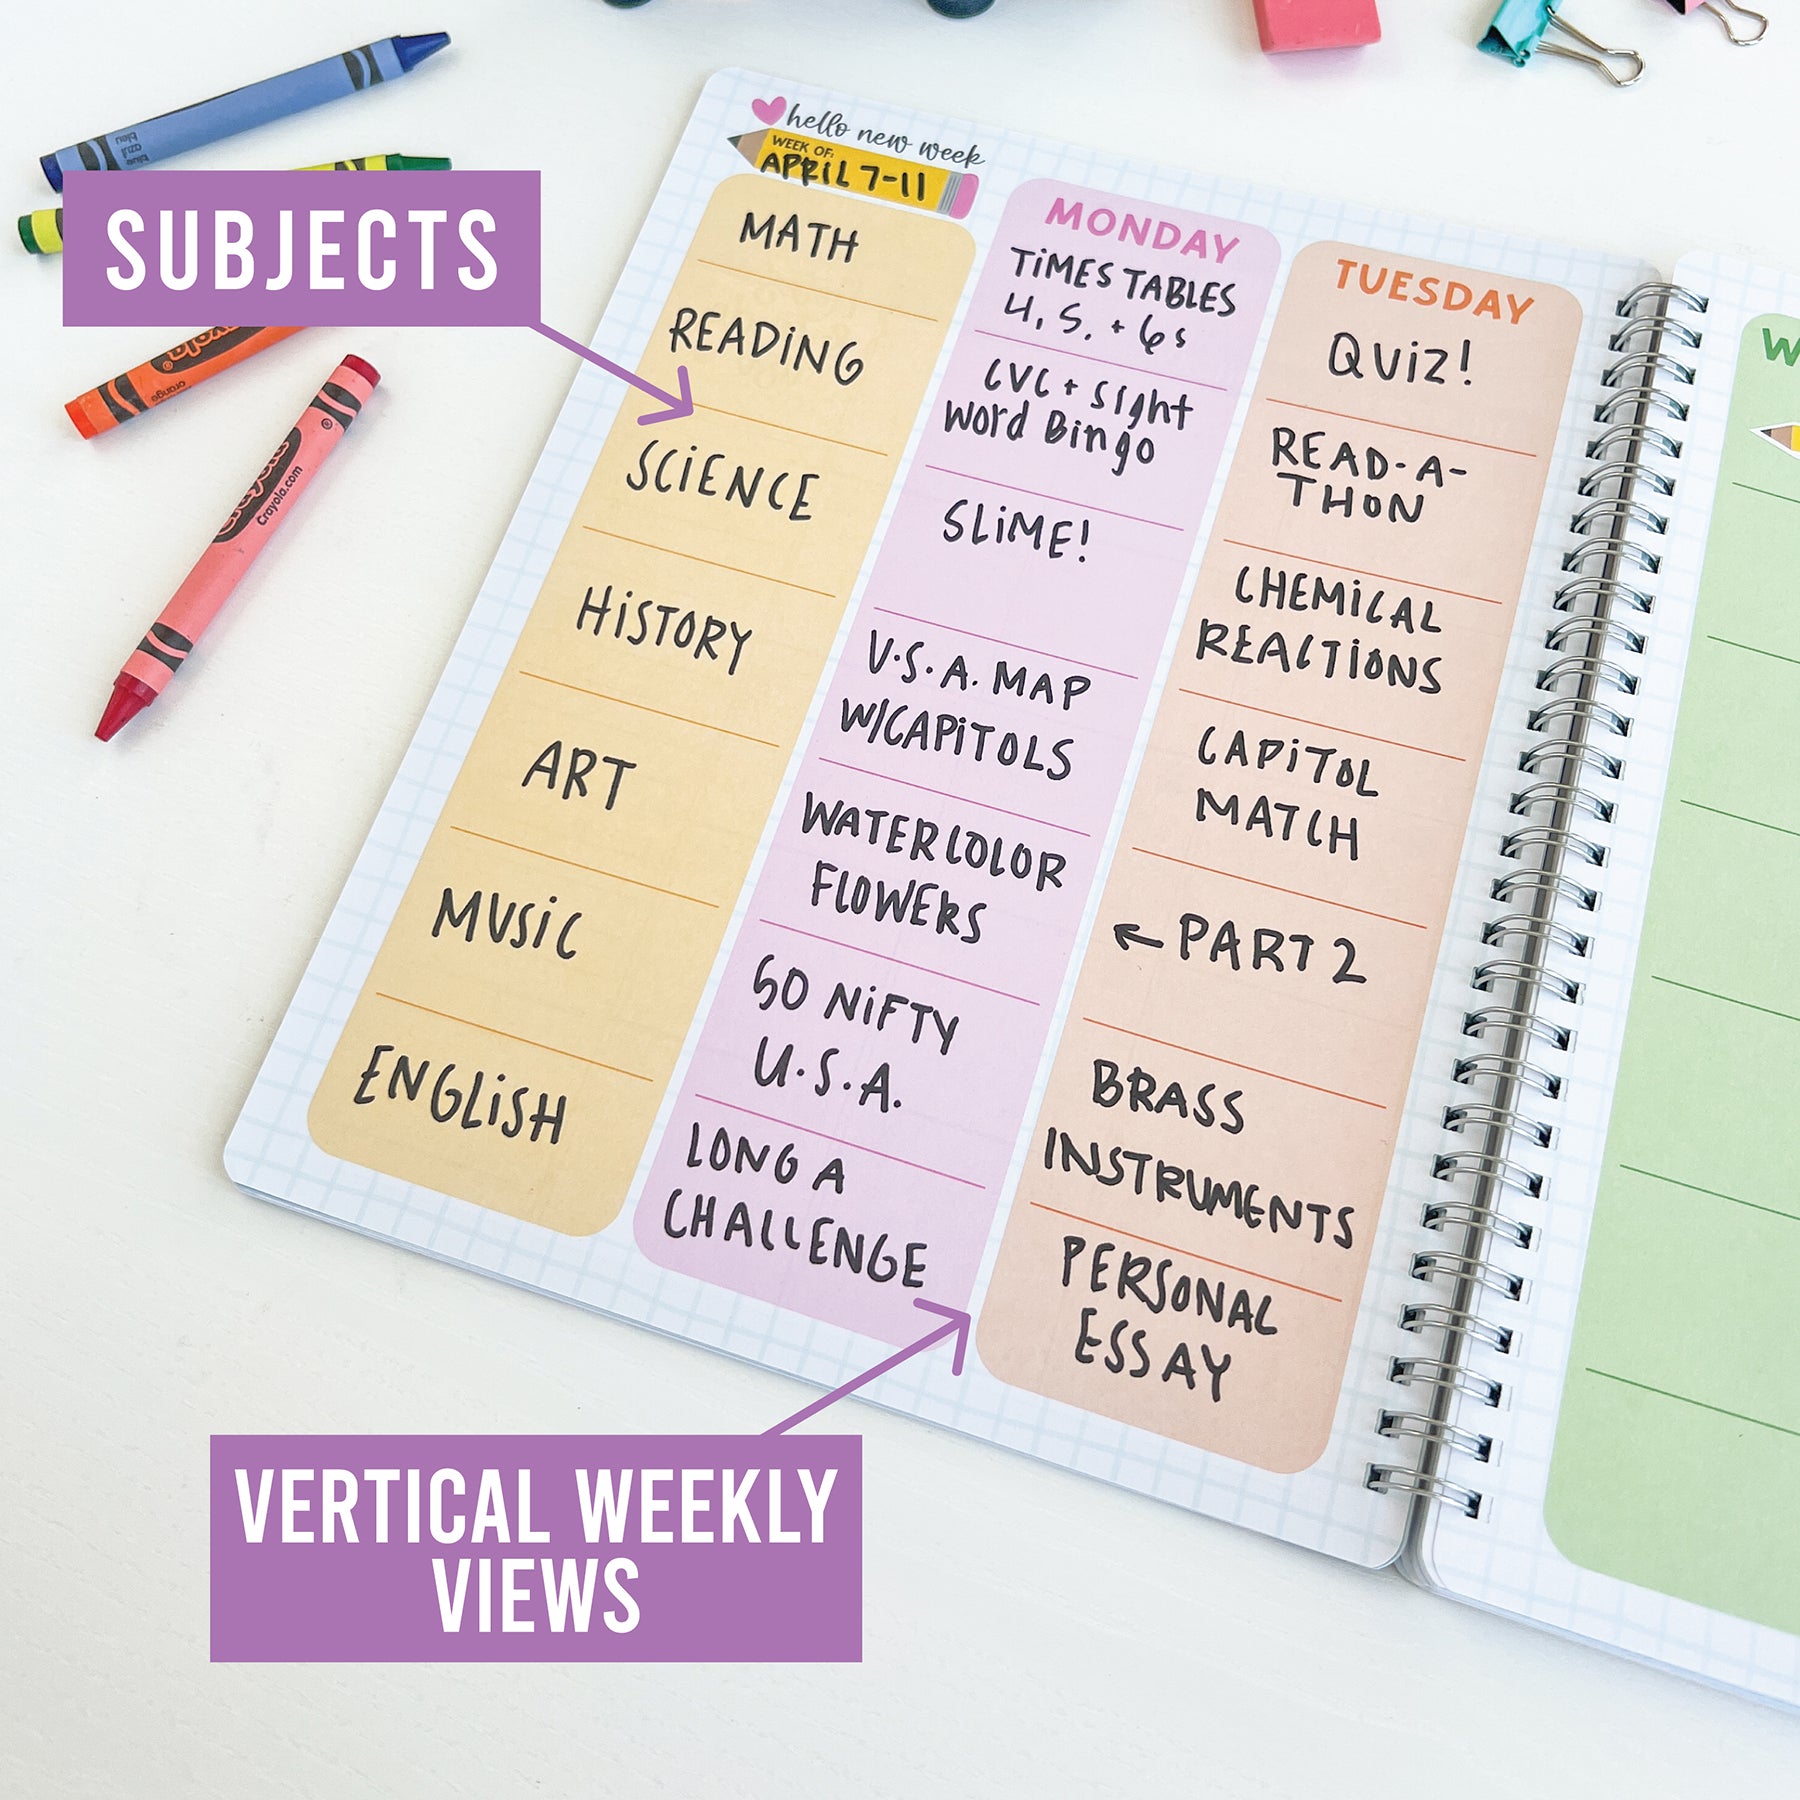 SUBJECTS
hello new week
WEEK OF:
APRIL 7-11
MATH
READING
SCIENCE
HISTORY
ART
MUSIC
ENGLISH
MONDAY
TIMES TABLES
4, 5, + 6s
CVC + Sight
Word Bingo
SLIME!
U.S.A. MAP
W/CAPITOLS
WATERCOLOR
FLOWERS
50 NIFTY
U.S.A.
LONG A
CHALLENGE
TUESDAY
QUIZ!
READ-A-
THON
CHEMICAL
REACTIONS
CAPITOL
MATCH
← PART 2
BRASS
INSTRUMENTS
PERSONAL
ESSAY
W
VERTICAL WEEKLY
VIEWS
blue
azul
bleu
orange
Crayola
Crayola.com